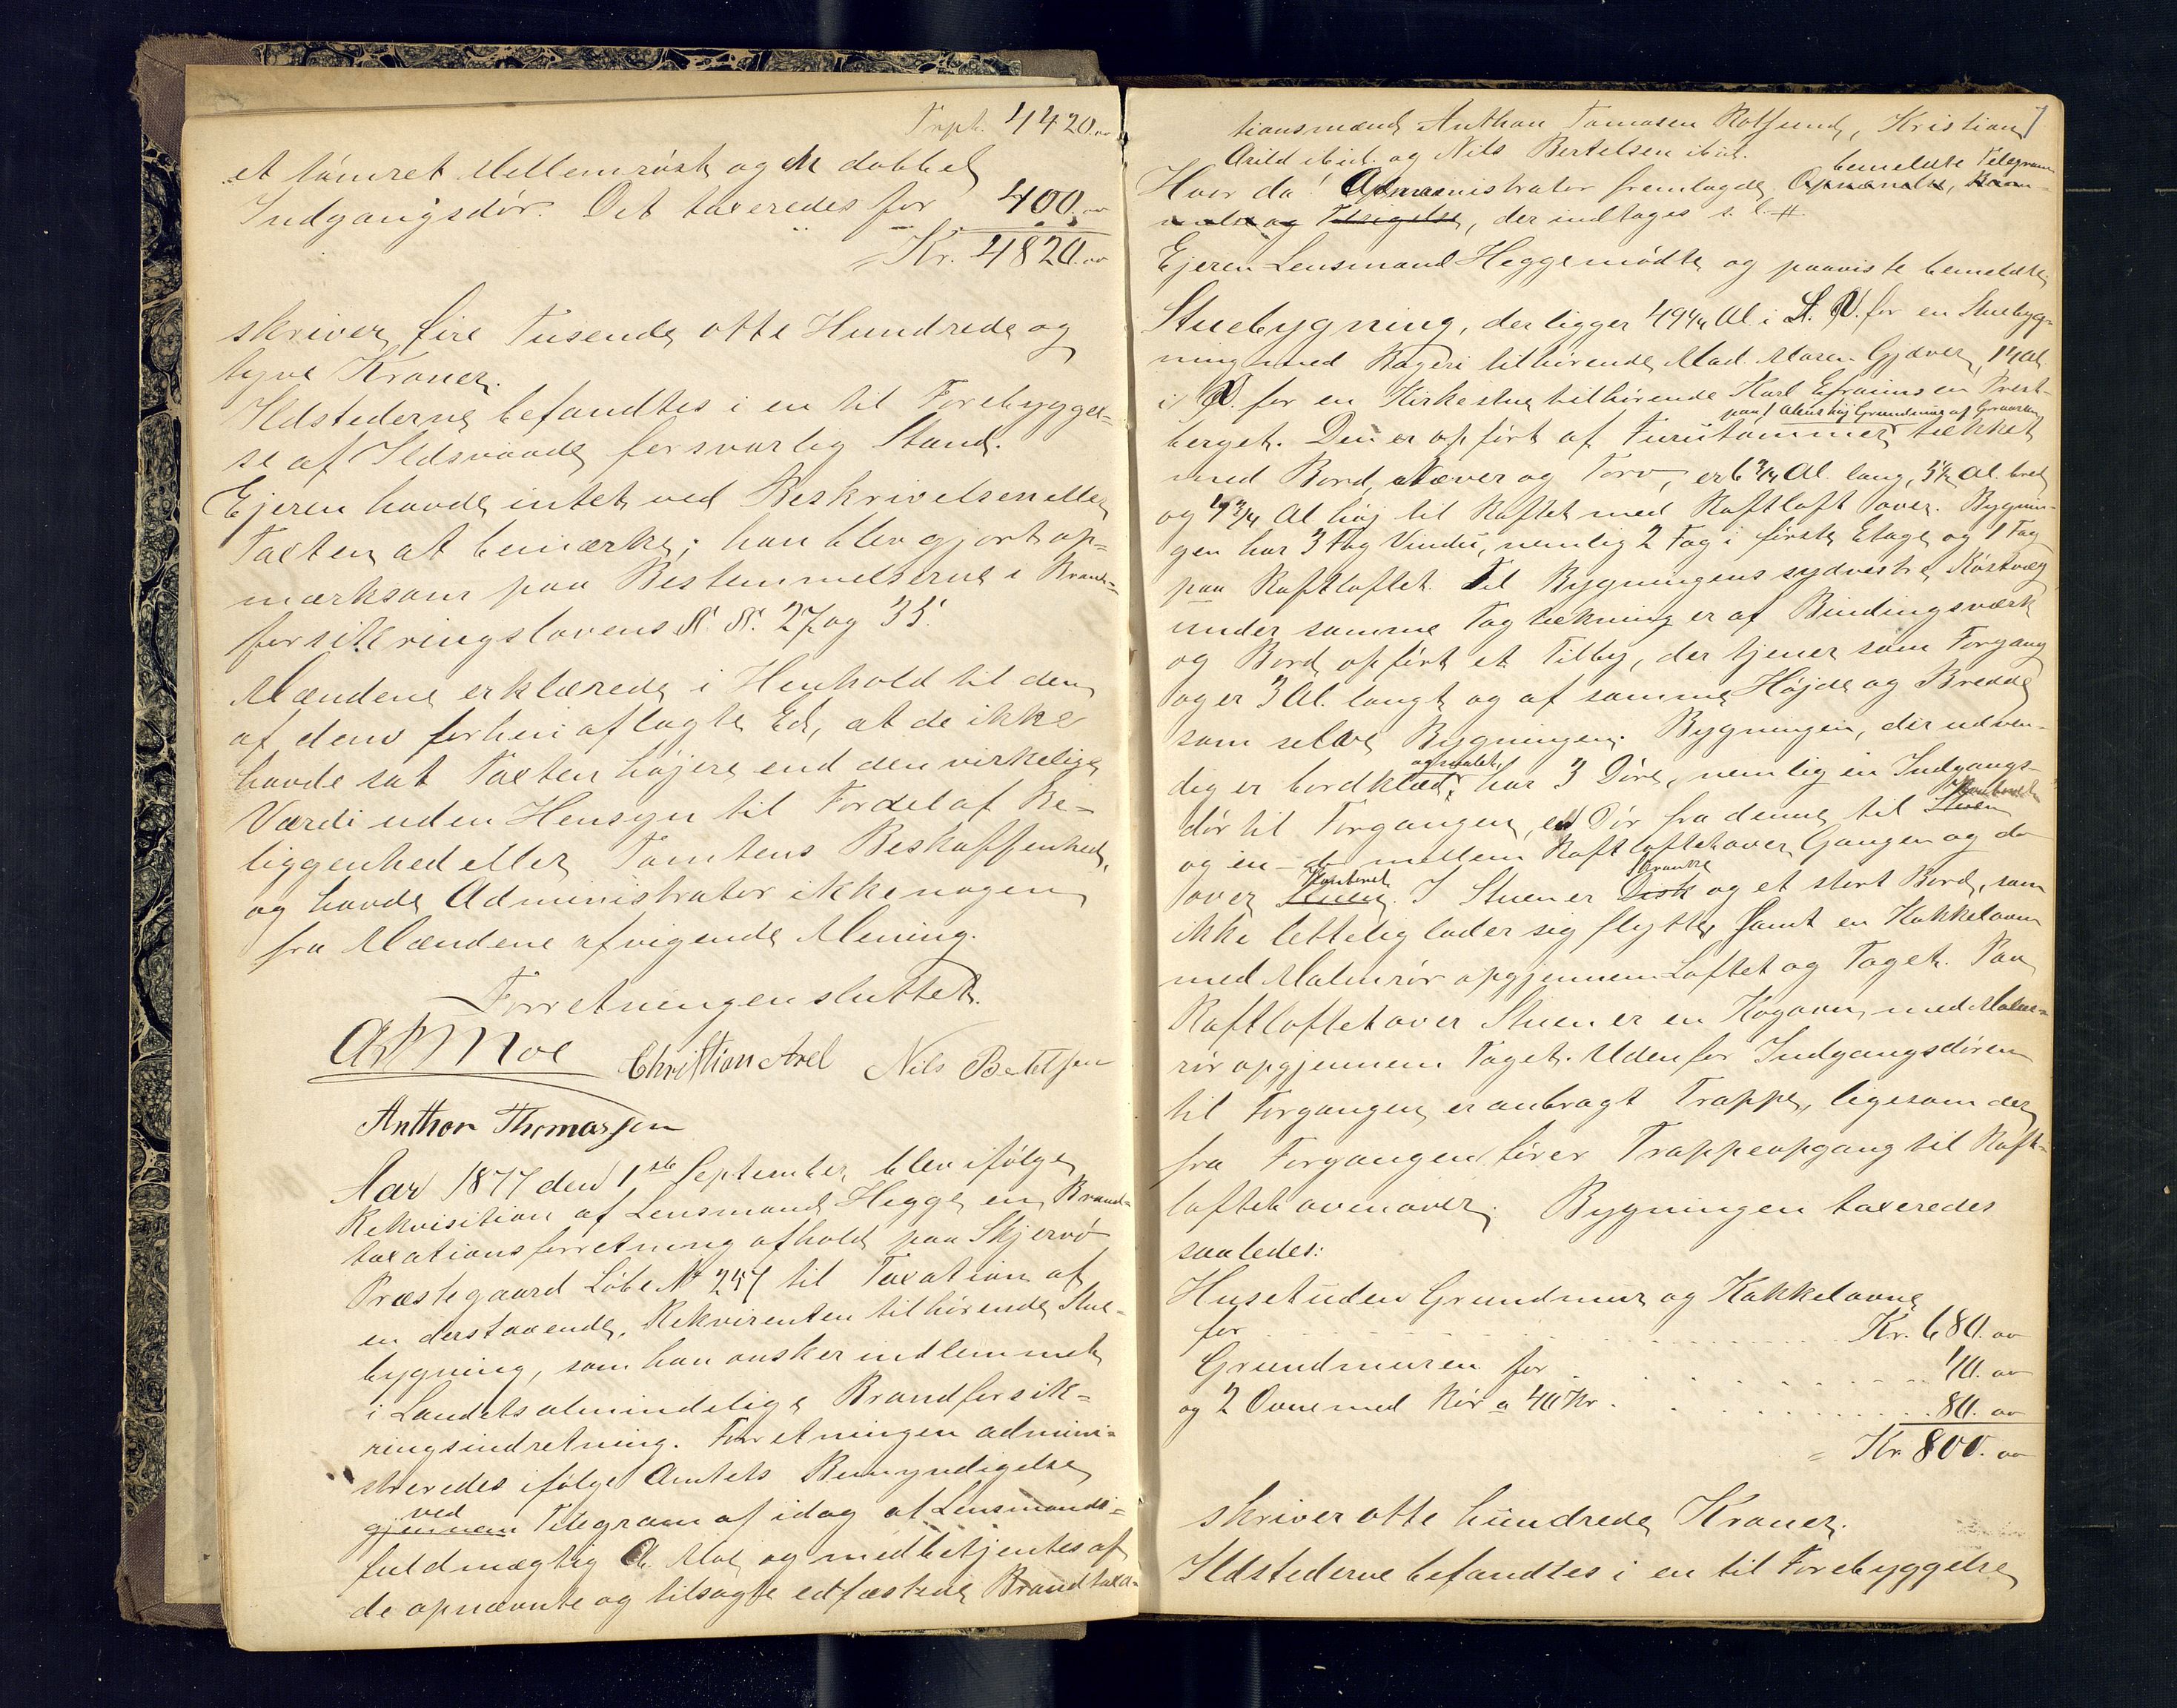 Trpt. 4420.
et tømret Mellemrøst og en dobbel
Indgangsdør. Det taxeredes for 400.
Kr. 4820.
skriver fire Tusende otte Hundrede og
tyve Kroner.
Ildstederne befandtes i en til Forebyggel-
se af Ildsvaade forsvarlig Stand.
Ejeren havde intet ved Beskrivelsen eller
Taxten at bemærke; han blev gjort op-
mærksom paa Bestemmelserne i Brand-
forsikringslovens §. §. 27 og 35.
Mændene erklærede i Henhold til den
af dem forhen aflagte Ed, at de ikke
havde sat Taxten højere end den virkelige
Værdi uden Hensyn til Fordel af Be-
liggenhed eller Tomtens Beskaffenhed,
og havde Administrator ikke nogen
fra Mændene afvigende Mening.
Forretningen sluttet.
Moe Christian Arel Nils Bertelsen
Anthon Thomassen
Aar 1877 den 1ste September blev ifølge
Rekvisition af Lensmand Hegge en Brand-
taxationsforretning afholdt paa Skjervø
Præstegaard Løbe No 247 til Taxation af
en derstaaende, Rekvirenten tilhørende Stue-
bygning, som han ønsker indlemmet
i Landets almindelige Brandforsik-
ringsindretning. Forretningen admini-
streredes ifølge Amtets Bemyndigelse
ved
gjennem Telegram af idag af Lensmands-
fuldmægtig A. Moe og medbetjentes af
de opnævnte og tilsagte edfæstede Brandtaxa-
7
tionsmænd Anthon Tomasen Rotsund, Kristian
Arild ibid. og Nils Bertelsen ibid.
bemeldte Telegram
Hvor da! Administrator fremlagde Opnævnelse,
og Tilsigelse, der indtages s. l. #
Ejeren Lensmand Hegge mødte og paaviste bemeldte
Stuebygning, der ligger 49¼ Al. i S. V. for en Stuebyg-
ning med Bageri tilhørende Mad. Maren Gjæver, 14 Al
i V. for en Kirkestue tilhørende Karl Efraimsen Prest-
paa 1 Alens høj Grundmur af Graasten
berget. Den er opført af Furutømmer tækket
med Bord, Næver og Torv, er 6¾ Al. lang, 5½ Al. bred
og 4¾ Al høj til Raftet med Raftloft over. Bygnin-
gen har 3 Fag Vindu, nemlig 2 Fag i første Etage og 1 Fag
paa Raftloftet. Til Bygningens sydvestre Røstvæg
under samme Tagtækning er af Bindingsværk
og Bord opført et Tilby, der tjener som Forgang
og er 3 Al. langt og af samme Højde og Bredde
som selve Bygningen. Bygningen, der udven-
og malet,
dig er bordklæd, har 3 Døre, nemlig en Indgangs-
Kontoret
dør til Forgangen, en Dør fra denne til Stuen
og en do mellem Raftloftet over Gangen og do
Kontoret Skranke
over Stuen. I Stuen er Disk og et stort Bord, som
ikke lettelig lader sig flytte, samt en Kakkelovn
med Malmrør opgjennem Loftet og Taget. Paa
Raftloftet over Stuen er en Kogovn med Malm-
rør opgjennem Taget. Udenfor Indgangsdøren
til Forgangen er anbragt Trappe, ligesom der
fra Forgangen fører Trappeopgang til Raft-
loftet ovenover. Bygningen taxeredes
saaledes:
Huset uden Grundmur og Kakkelovne
for Kr. 680.
Grundmuren for 40.
og 2 Ovne med Rør a 40 Kr. 80.
= Kr. 800.
skriver otte hundrede Kroner.
Ildstederne befandtes i en til Forebyggelse